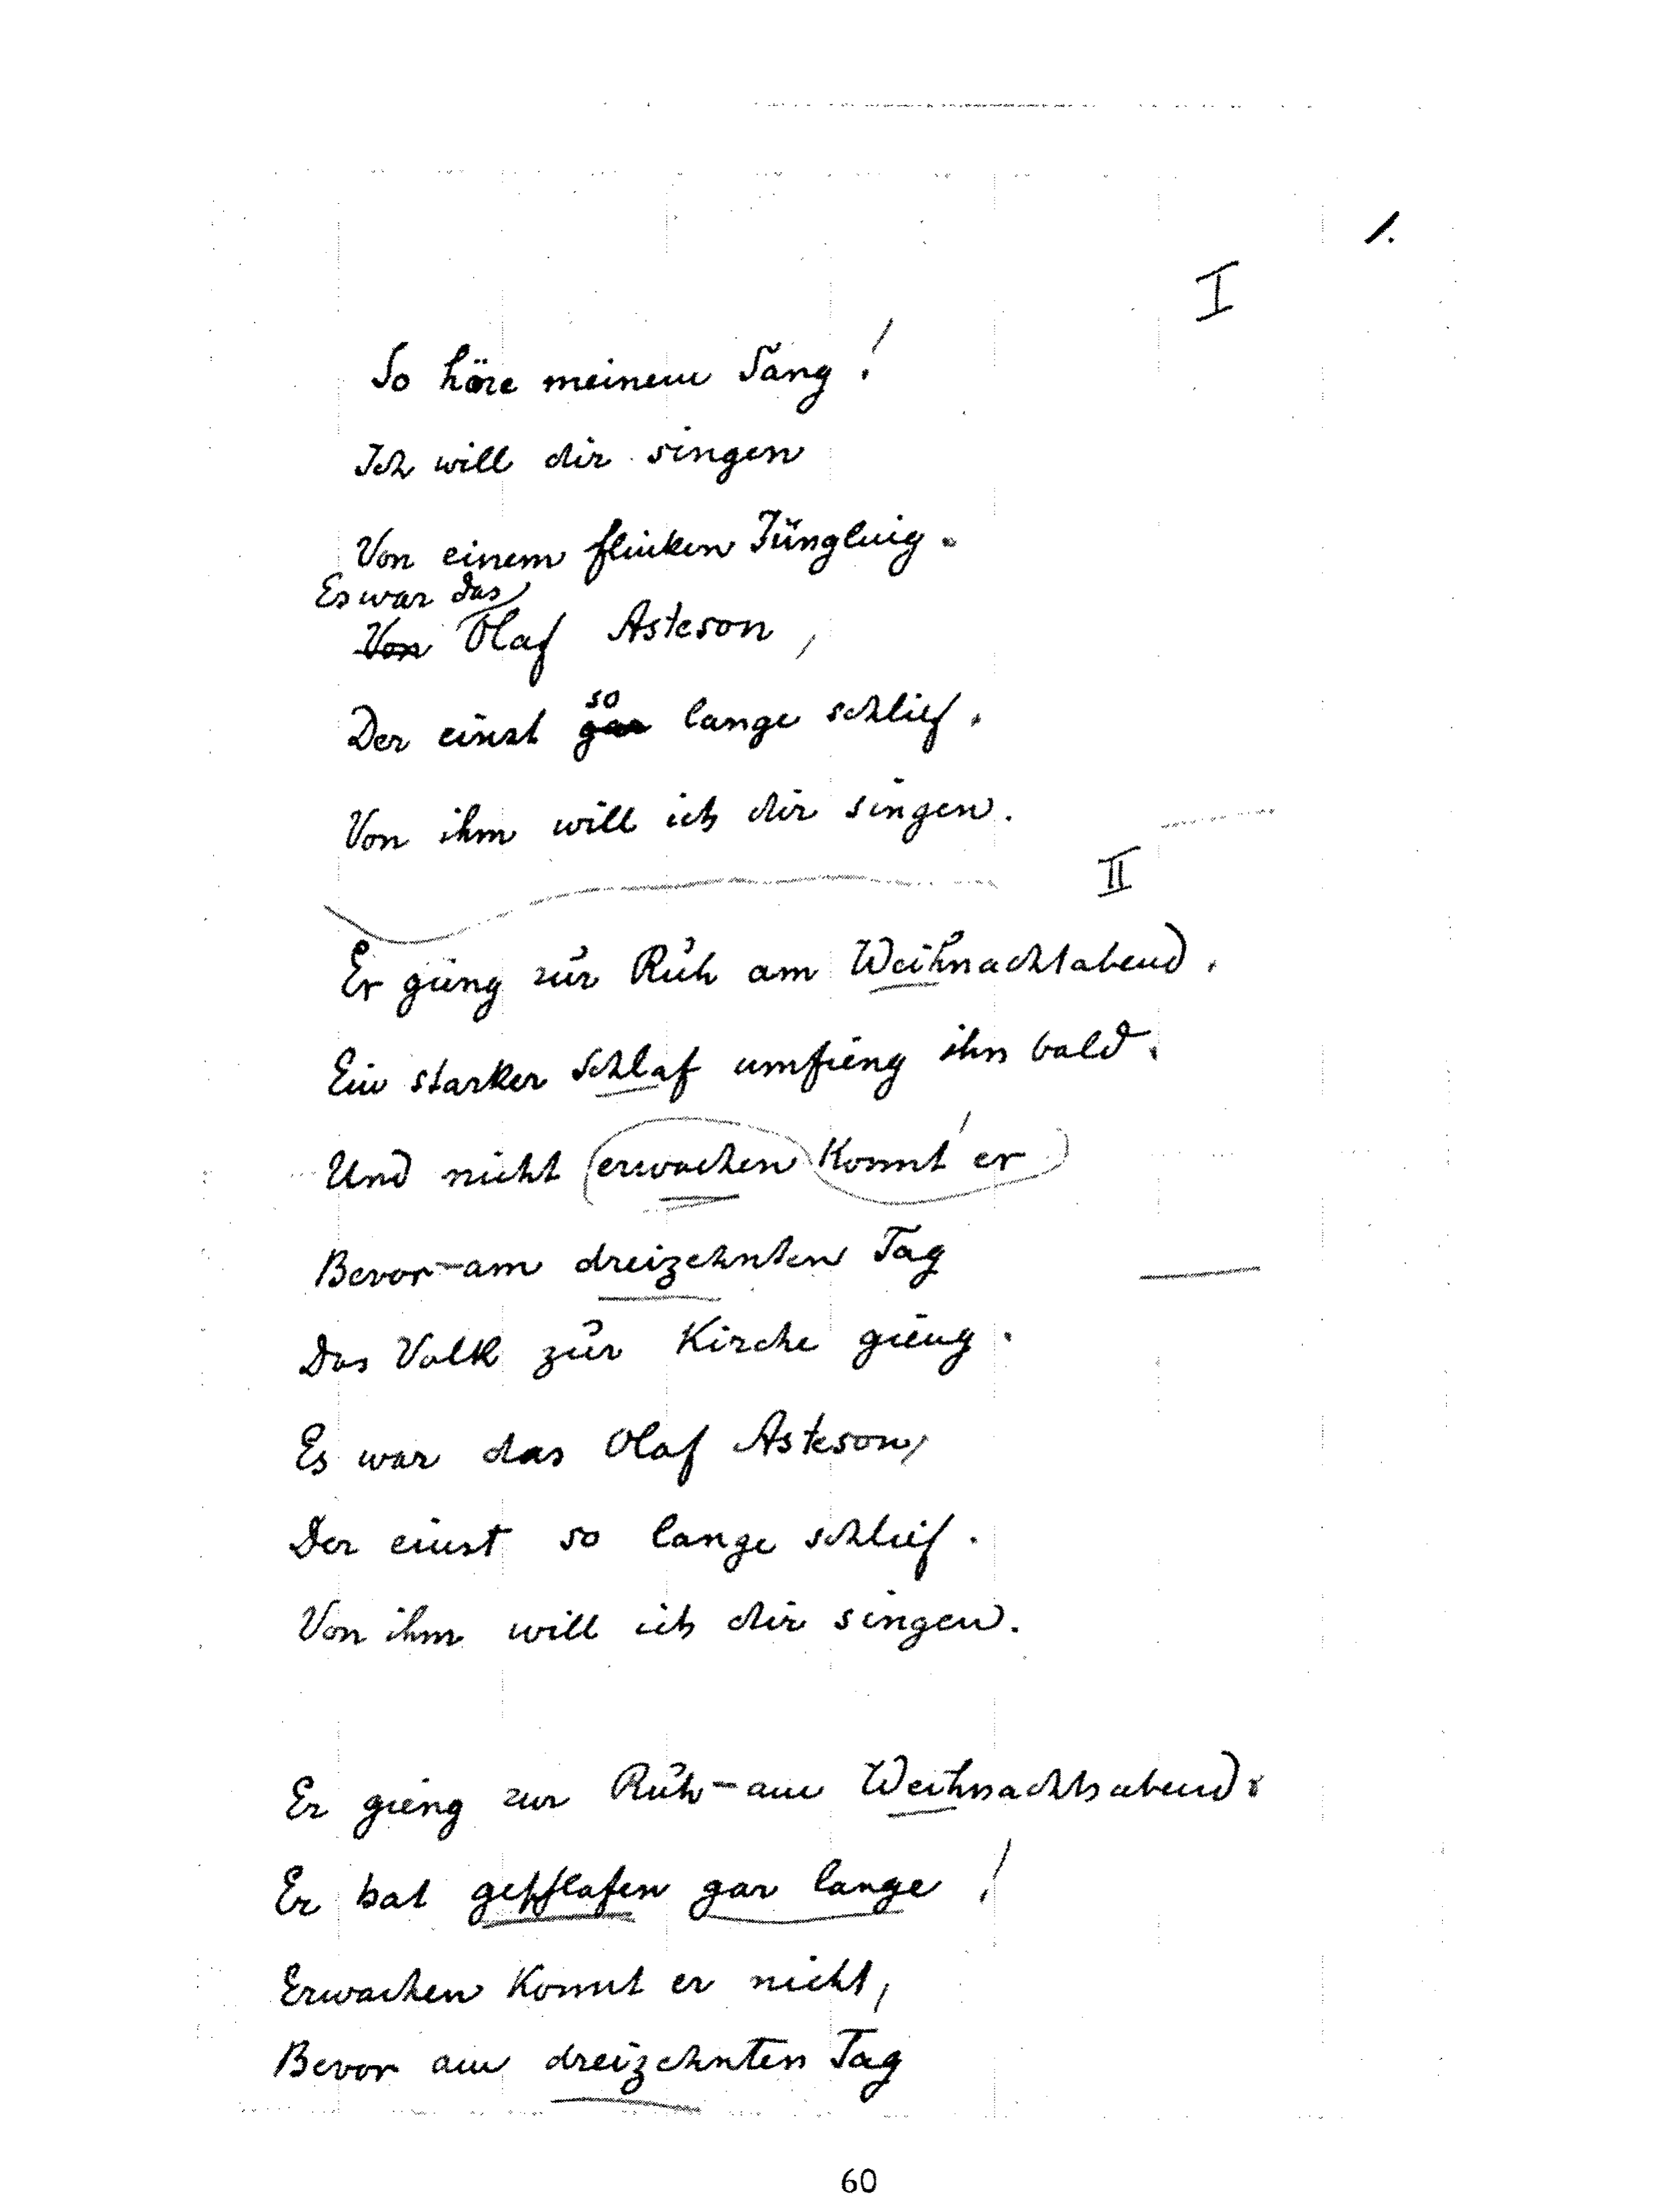 1.
I
So höre meinem Sang!
Ich will dir singen
Von einem flinken Jüngling.
Es war das
Von Olaf Asteson,
so
Der einst gar lange schlief.
Von ihm will ich dir singen.
II
Er gieng zur Ruh am Weihnachtabend.
Ein starker Schlaf umfieng ihn bald.
Und nicht (erwachen) konnt' er)
Bevor – am dreizehnten Tag
Das Volk zur Kirche gieng.
Es war das Olaf Asteson,
Der einst so lange schlief.
Von ihm will ich dir singen.
Er gieng zur Ruh – am Weihnachtsabend.
Er hat geschlafen gar lange!
Erwachen konnt er nicht,
Bevor am dreizehnten Tag
60